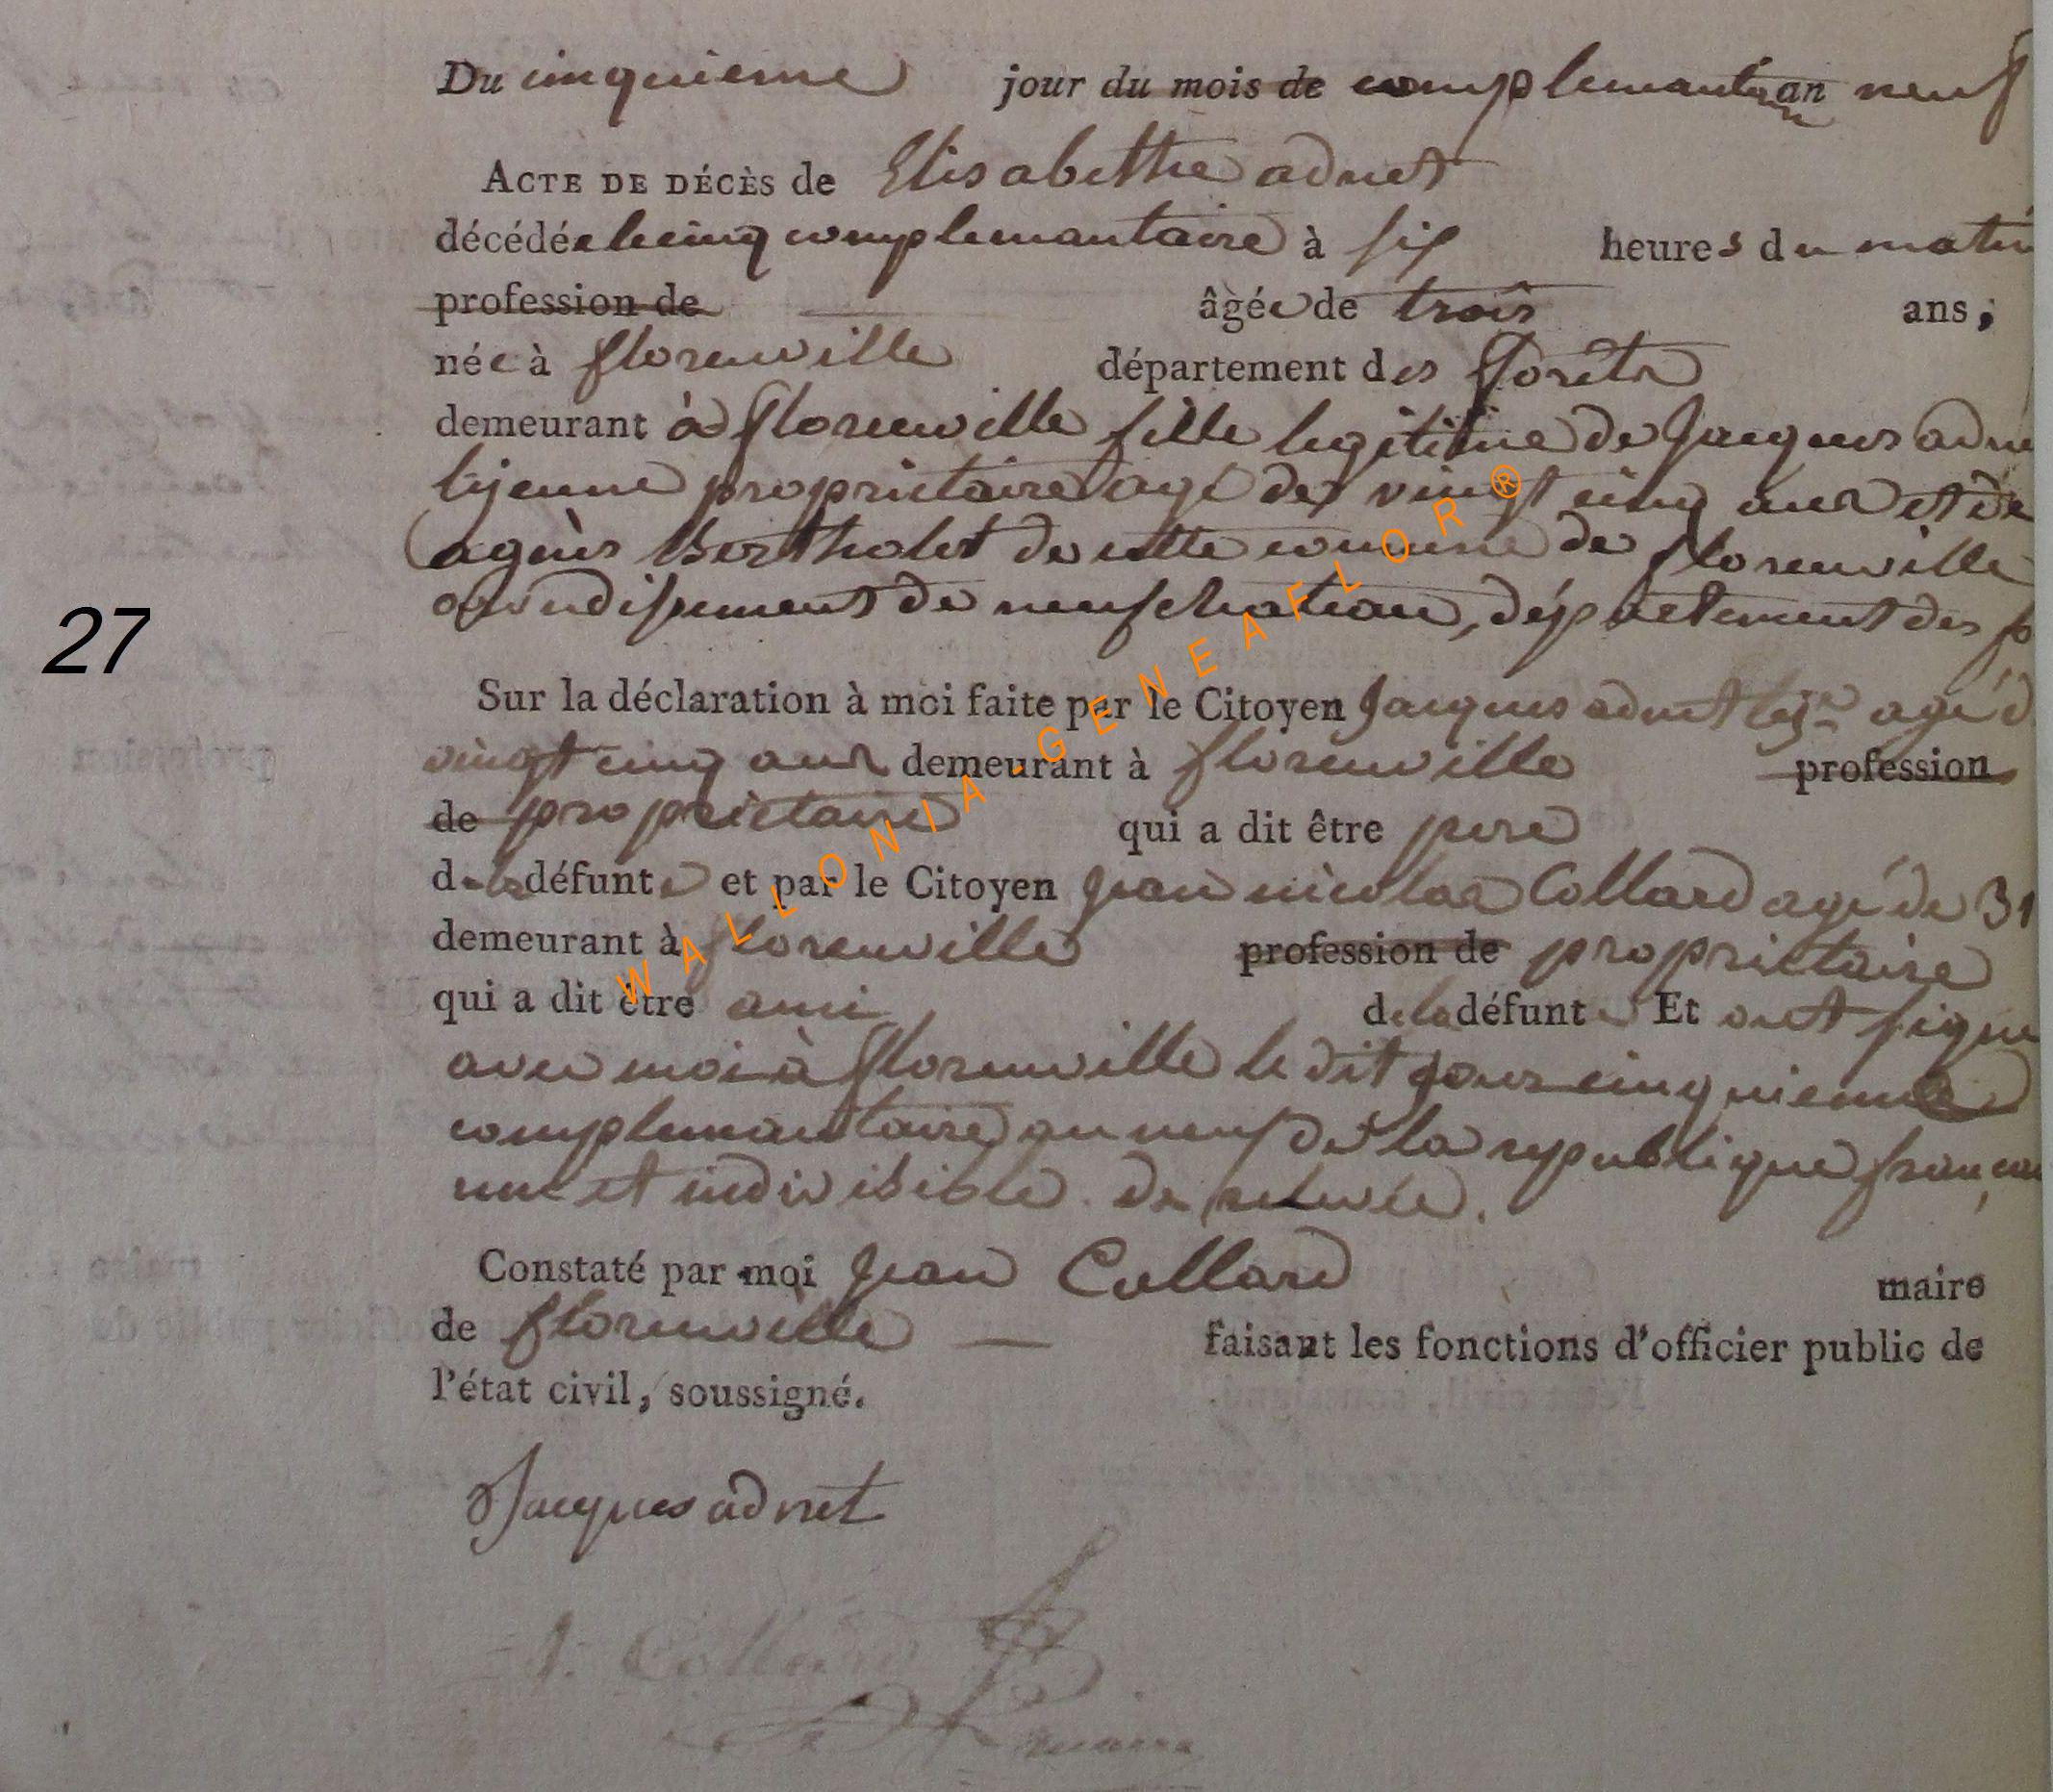 Du cinquieme jour du mois de complemantair an neuf
ACTE DE DÉCÈS de Elisabethe adnet
décédée le cinq complemantaire à six heures du matin
profession de âgée de trois ans,
née à florenville département des Forêts
demeurant à florenville fille legitime de Jacques adne
lejeune proprietaire agé de vingt cinq ans et de
agnès Bertholet de cette comune de florenville
arondissement de neufchateau, département des fo
27
Sur la déclaration à moi faite par le Citoyen Jacques adnet lejne agé d
vingt cinq ans demeurant à florenville profession
de proprietaire qui a dit être pere
de la défunte et par le Citoyen jean nicolas Collard agé de 31
demeurant à florenville profession de proprietaire
qui a dit être ami de la défunte Et ont signé
avec moi à florenville le dit jour cinquieme
complemantaire an neuf de la republique françai
une et indivisible. de relevée.
Constaté par moi jean Collard maire
de florenville faisant les fonctions d'officier public de
l'état civil, soussigné.
Jacques adnet
J. Collard
maire
WALLONIA-GENEAFLOR®